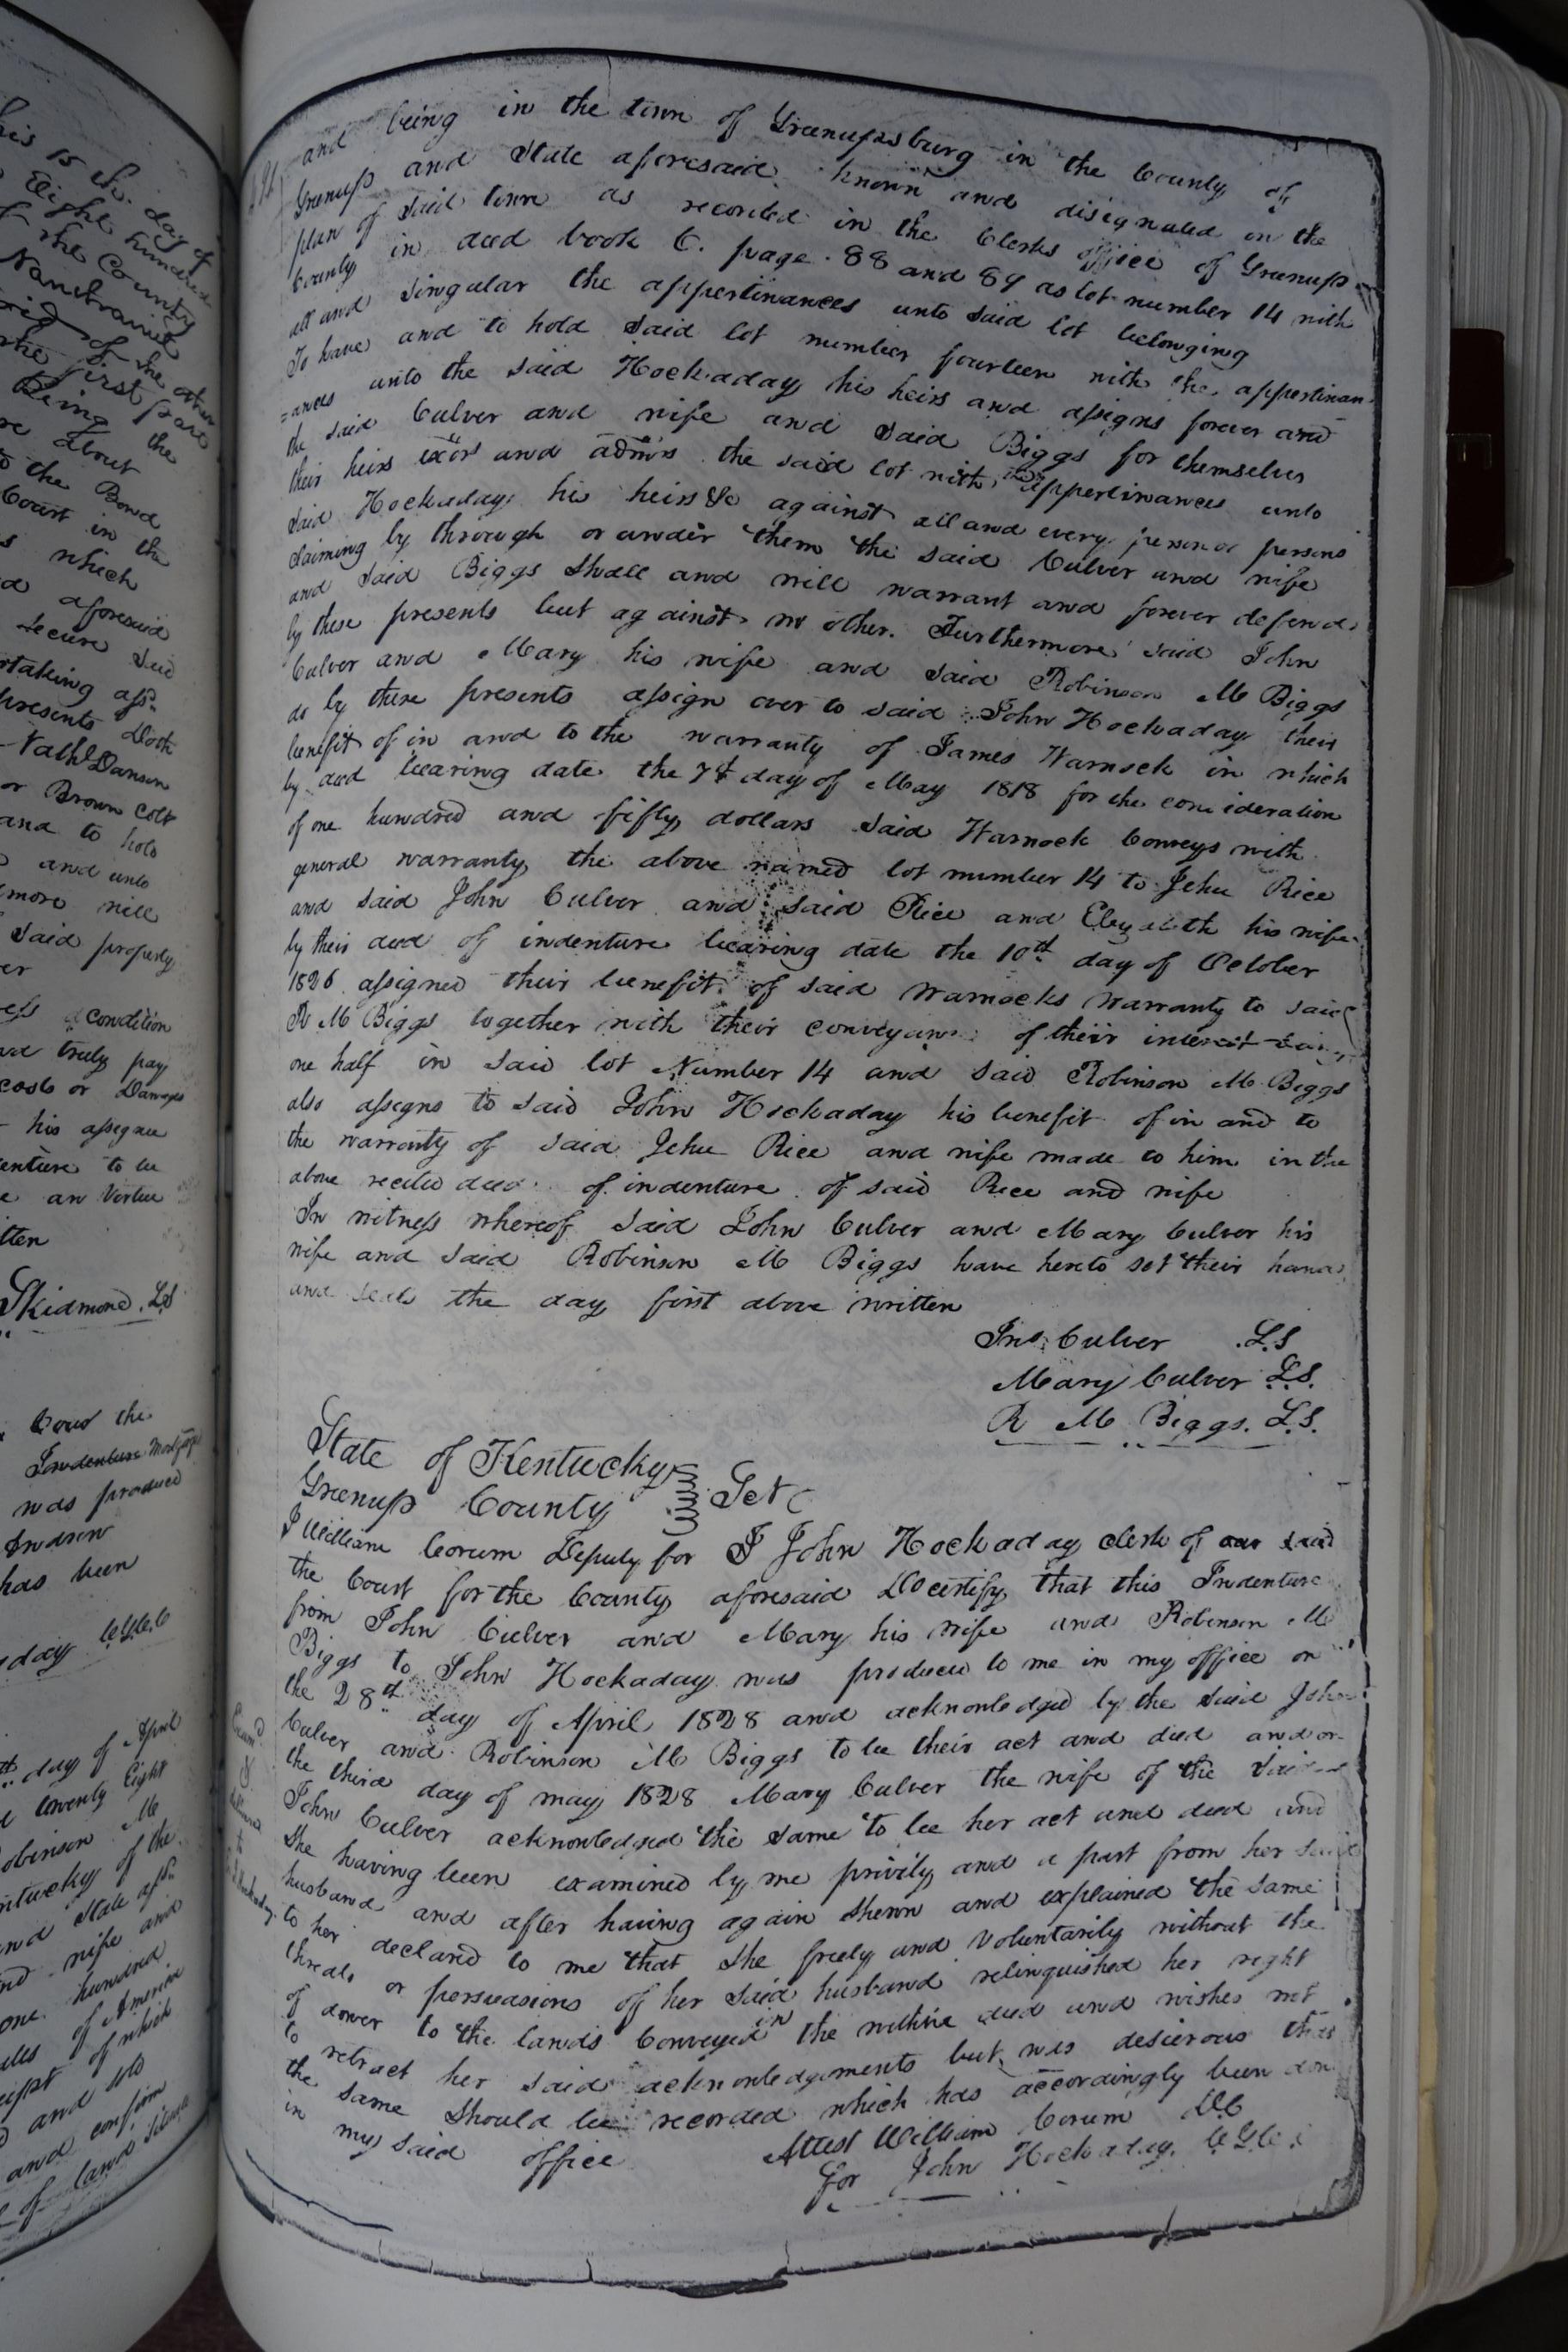 his 15 th. day of
Eight hundred
of the County
Nanthaniel
of the other
the first part
Being the
about
to the Bond
Court in the
which
aforesaid
secure said
presents Doth
Nathl Dawson
or Brown colt
and to hold
and unto
more will
said property
condition
truly pay
costs or Damages
his assignee
indenture to be
an Virtue
Skidmore. LS
Indenture Mortgage
was produced
Andrew
has been
day of April
twenty Eight
Robinson M
Kentucky of the
and State afsd
wife and
one hundred
of America
receipt of which
and sold
and confirm
of land Situate
and being in the town of Greenupsburg in the County of
Greenup and State aforesaid known and disignated in the
plan of said town as recorded in the Clerks office of Greenup
County in deed book C. page. 88 and 89 as lot number 14 with
all and singular the appertinances unto said lot belonging
To have and to hold said lot number fourteen with the appertinan
=ances unto the said Hockaday his heirs and assigns forever and
the said Culver and wife and said Biggs for themselves
their heirs exors and admrs the said lot with the appertinances unto
said Hockaday his heirs &c against all and every person or persons
claiming by through or under them the said Culver and wife
and said Biggs shall and will warrant and forever defend
by these presents but against no other. Furthermore said John
Culver and Mary his wife and said Robinson M Biggs
do by these presents assign over to said John Hockaday their
benefit of in and to the warranty of James Warnock in which
by deed bearing date the 7th day of May 1818 for the consideration
of one hundred and fifty dollars said Warnock Conveys with
general warranty the above named lot number 14 to Jehu Rice
and said John Culver and said Rice and Elizabeth his wife
by their deed of indenture bearing date the 10th day of October
1826 assigned their benefit of said Warnocks Warranty to said
R M Biggs together with their conveyance of their interest being
one half in said lot Number 14 and said Robinson M Biggs
also assigns to said John Hockaday his benefit of in and to
the warranty of said Jehu Rice and wife made to him in the
above recited deed of indenture of said Rice and wife
In witness whereof said John Culver and Mary Culver his
wife and said Robinson M Biggs have hereto set their hands
and seals the day first above written
Jno Culver LS
Mary Culver LS.
R M Biggs. LS.
State of Kentucky
Greenup County Sct
I William Corum Deputy for I John Hockaday clerk of our said
the Court for the County aforesaid Do certify that this Indenture
from John Culver and Mary his wife and Robinson M
Biggs to John Hockaday was produced to me in my office on
the 28th day of April 1828 and acknowledged by the said John
Culver and Robinson M Biggs to be their act and deed and on
the third day of may 1828 Mary Culver the wife of the said
John Culver acknowledged the same to be her act and deed and
She having been examined by me privily and a part from her said
husband and after having again shewn and explained the same
to her declared to me that she freely and Voluntarily without the
threats or persuasions of her said husband relinquished her right
of dower to the lands Conveyed in the within deed and wishes not
to retract her said acknowledgements but was desierous that
the same should be recorded which has accordingly been don
in my said office Attest William Corum DC
for John Hockaday. C G C C